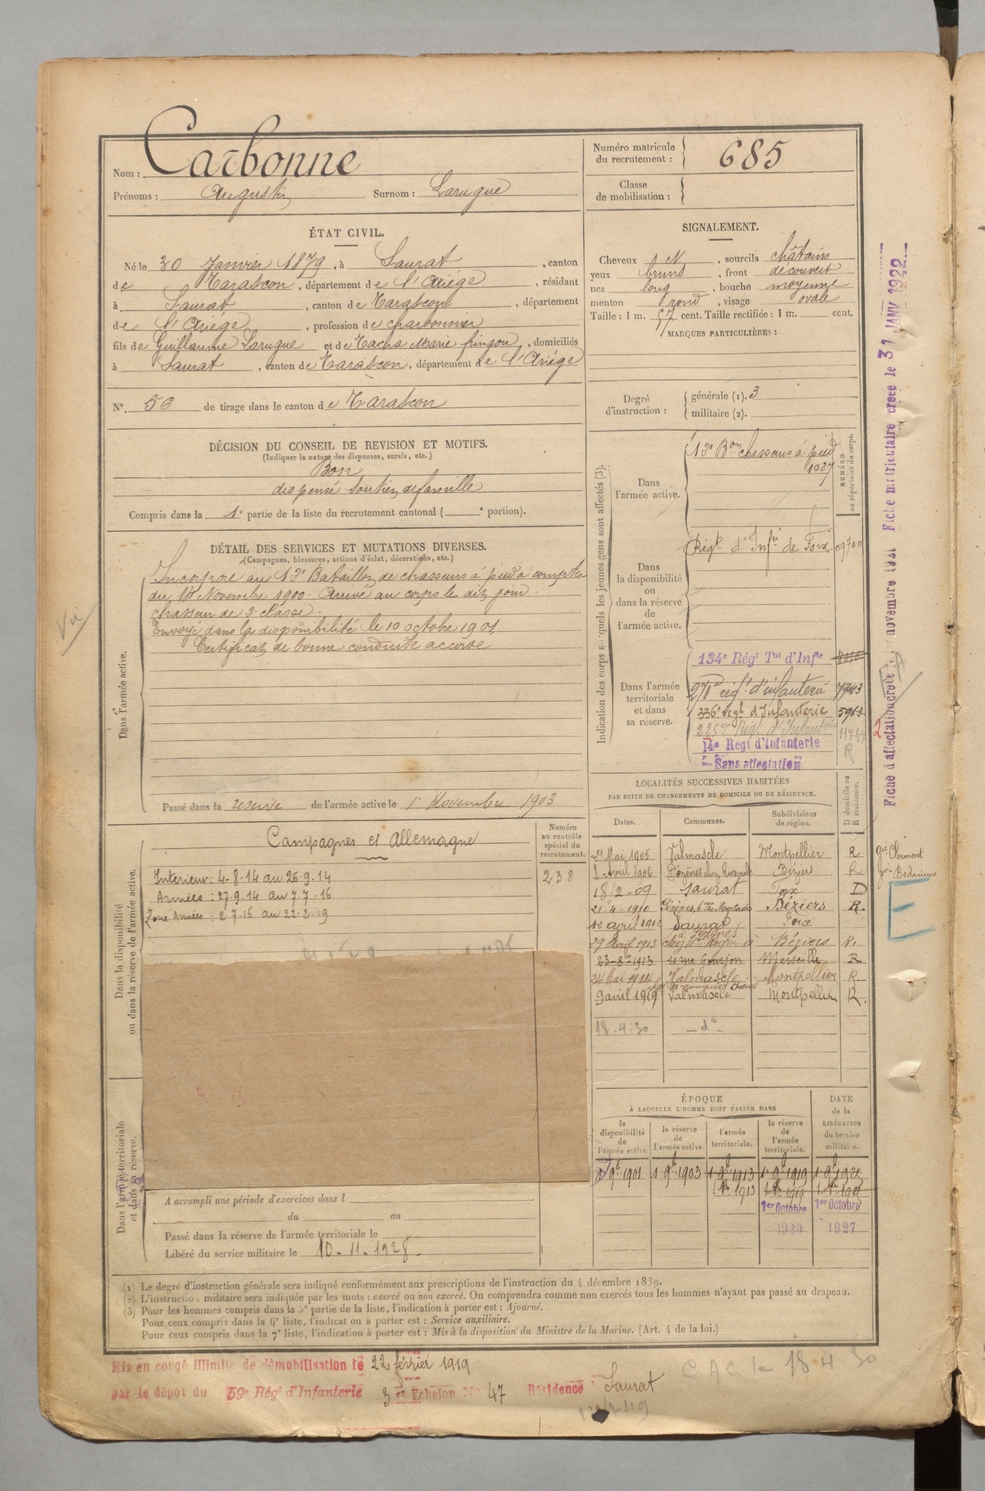 Nom : Carbonne
Prénoms : Augustin Surnom : Larugue
Numéro matricule du recrutement : 685
Classe de mobilisation :
ÉTAT CIVIL.
Né le 30 Janvier 1879, à Saurat, canton
de Tarascon, département de l'Ariège, résidant
à Saurat, canton de Tarascon, département
de l'Ariège, profession de charbonnier
fils de Guillaume Larugue et de Tacha Marie, domiciliés
à Saurat, canton de Tarascon, département de l'Ariège
N° 56 de tirage dans le canton de Tarascon
SIGNALEMENT.
Cheveux N, sourcils châtains
yeux bruns, front découvert
nez long, bouche moyenne
menton rond, visage ovale
Taille : 1 m. 57 cent. Taille rectifiée : 1 m. cent.
MARQUES PARTICULIÈRES :
Degré d'instruction : générale (1). 3
militaire (2).
DÉCISION DU CONSEIL DE REVISION ET MOTIFS.
(Indiquer la nature des dispenses, sursis, etc.)
Bon
dispensé soutien de famille
Compris dans la 1e partie de la liste du recrutement cantonal ( e portion).
DÉTAIL DES SERVICES ET MUTATIONS DIVERSES.
(Campagnes, blessures, actions d'éclat, décorations, etc.)
Dans l'armée active.
Incorporé au 13e Bataillon de chasseurs à pied à compter
du 10 Novembre 1900. Arrivé au corps le dix jour.
chasseur de 2e classe.
Envoyé dans la disponibilité le 10 octobre 1901
Certificat de bonne conduite accordé
Vu
Passé dans la réserve de l'armée active le 1er Novembre 1903
Indication des corps auxquels les jeunes gens sont affectés (3).
NUMÉRO au répertoire du corps.
Dans l'armée active.
13e Bon chasseurs à pied
1027
Dans la disponibilité ou dans la réserve de l'armée active.
Régt d'Infie de Foix 09700
Dans l'armée territoriale et dans sa réserve.
134e Régt Tal d'Infie
271e régt d'infanterie 7743
336e Régt d'Infanterie
285me Régt d'Infanterie
14e Regt d'Infanterie R
Sans affectation
Fiche d'affectation créée novembre 1921 Fiche matriculaire créée le 31 JANV 1922
Dans la disponibilité ou dans la réserve de l'armée active.
Campagnes et Allemagne
Numéro au contrôle spécial du recrutement.
238
Interieur : 4-8-14 au 26-9-14
Armées : 27-9-14 au 7-7-16
Zone Armées : 8-7-16 au 22-2-19
LOCALITÉS SUCCESSIVES HABITÉES
PAR SUITE DE CHANGEMENTS DE DOMICILE OU DE RÉSIDENCE.
Dates. Communes. Subdivisions de région. D domicile ou R résidence.
Mai 1905 Valmascle Montpellier R
Avril 1906 Béziers R
18/2-09 Saurat Foix D
21-4-1910 Béziers R
12 april 1912 Saurat Foix
29 Avril 1913 Béziers R.
23-8bre 1913 Marseille R
24 Mai Valmascle Montpellier R
9 avril 1919 Valmascle Montpellier R.
18.4.30 - do -
E
ÉPOQUE
À LAQUELLE L'HOMME DOIT PASSER DANS
DATE de la LIBÉRATION du service militaire.
la disponibilité de l'armée active. la réserve de l'armée active. l'armée territoriale. la réserve de l'armée territoriale.
1 9e 1901 1 9e 1903 1 9e 1913 1 9e 1919
1913 1919
1er Octobre 1er Octobre
1920 1927
Dans l'armée territoriale et dans sa réserve.
A accompli une période d'exercices dans l
du au
Passé dans la réserve de l'armée territoriale le
Libéré du service militaire le 10-11-1928
(1) Le degré d'instruction générale sera indiqué conformément aux prescriptions de l'instruction du 4 décembre 1889.
(2) L'instruction militaire sera indiquée par les mots : exercé ou non exercé. On comprendra comme non exercés tous les hommes n'ayant pas passé au drapeau.
(3) Pour les hommes compris dans la 5e partie de la liste, l'indication à porter est : Ajourné.
Pour ceux compris dans la 6e liste, l'indication à porter est : Service auxiliaire.
Pour ceux compris dans la 7e liste, l'indication à porter est : Mis à la disposition du Ministre de la Marine. (Art. 4 de la loi.)
Mis en congé illimité de démobilisation le 22 février 1919
par le dépôt du 59e Régt d'Infanterie 3er Echelon No 47 Résidence Saurat
CAC le 18 4 30